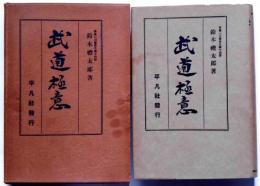 鈴木禮太郎著
武道極意
平凡社發行
鈴木禮太郎著
武道極意
平凡社發行